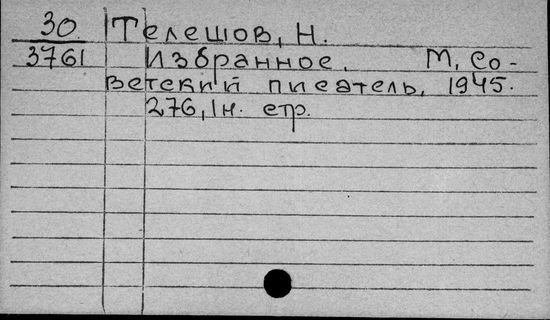 30 Телешов, Н.
3761 Избранное. М, Со-
ветский писатель, 1945.
276, 1н. стр.